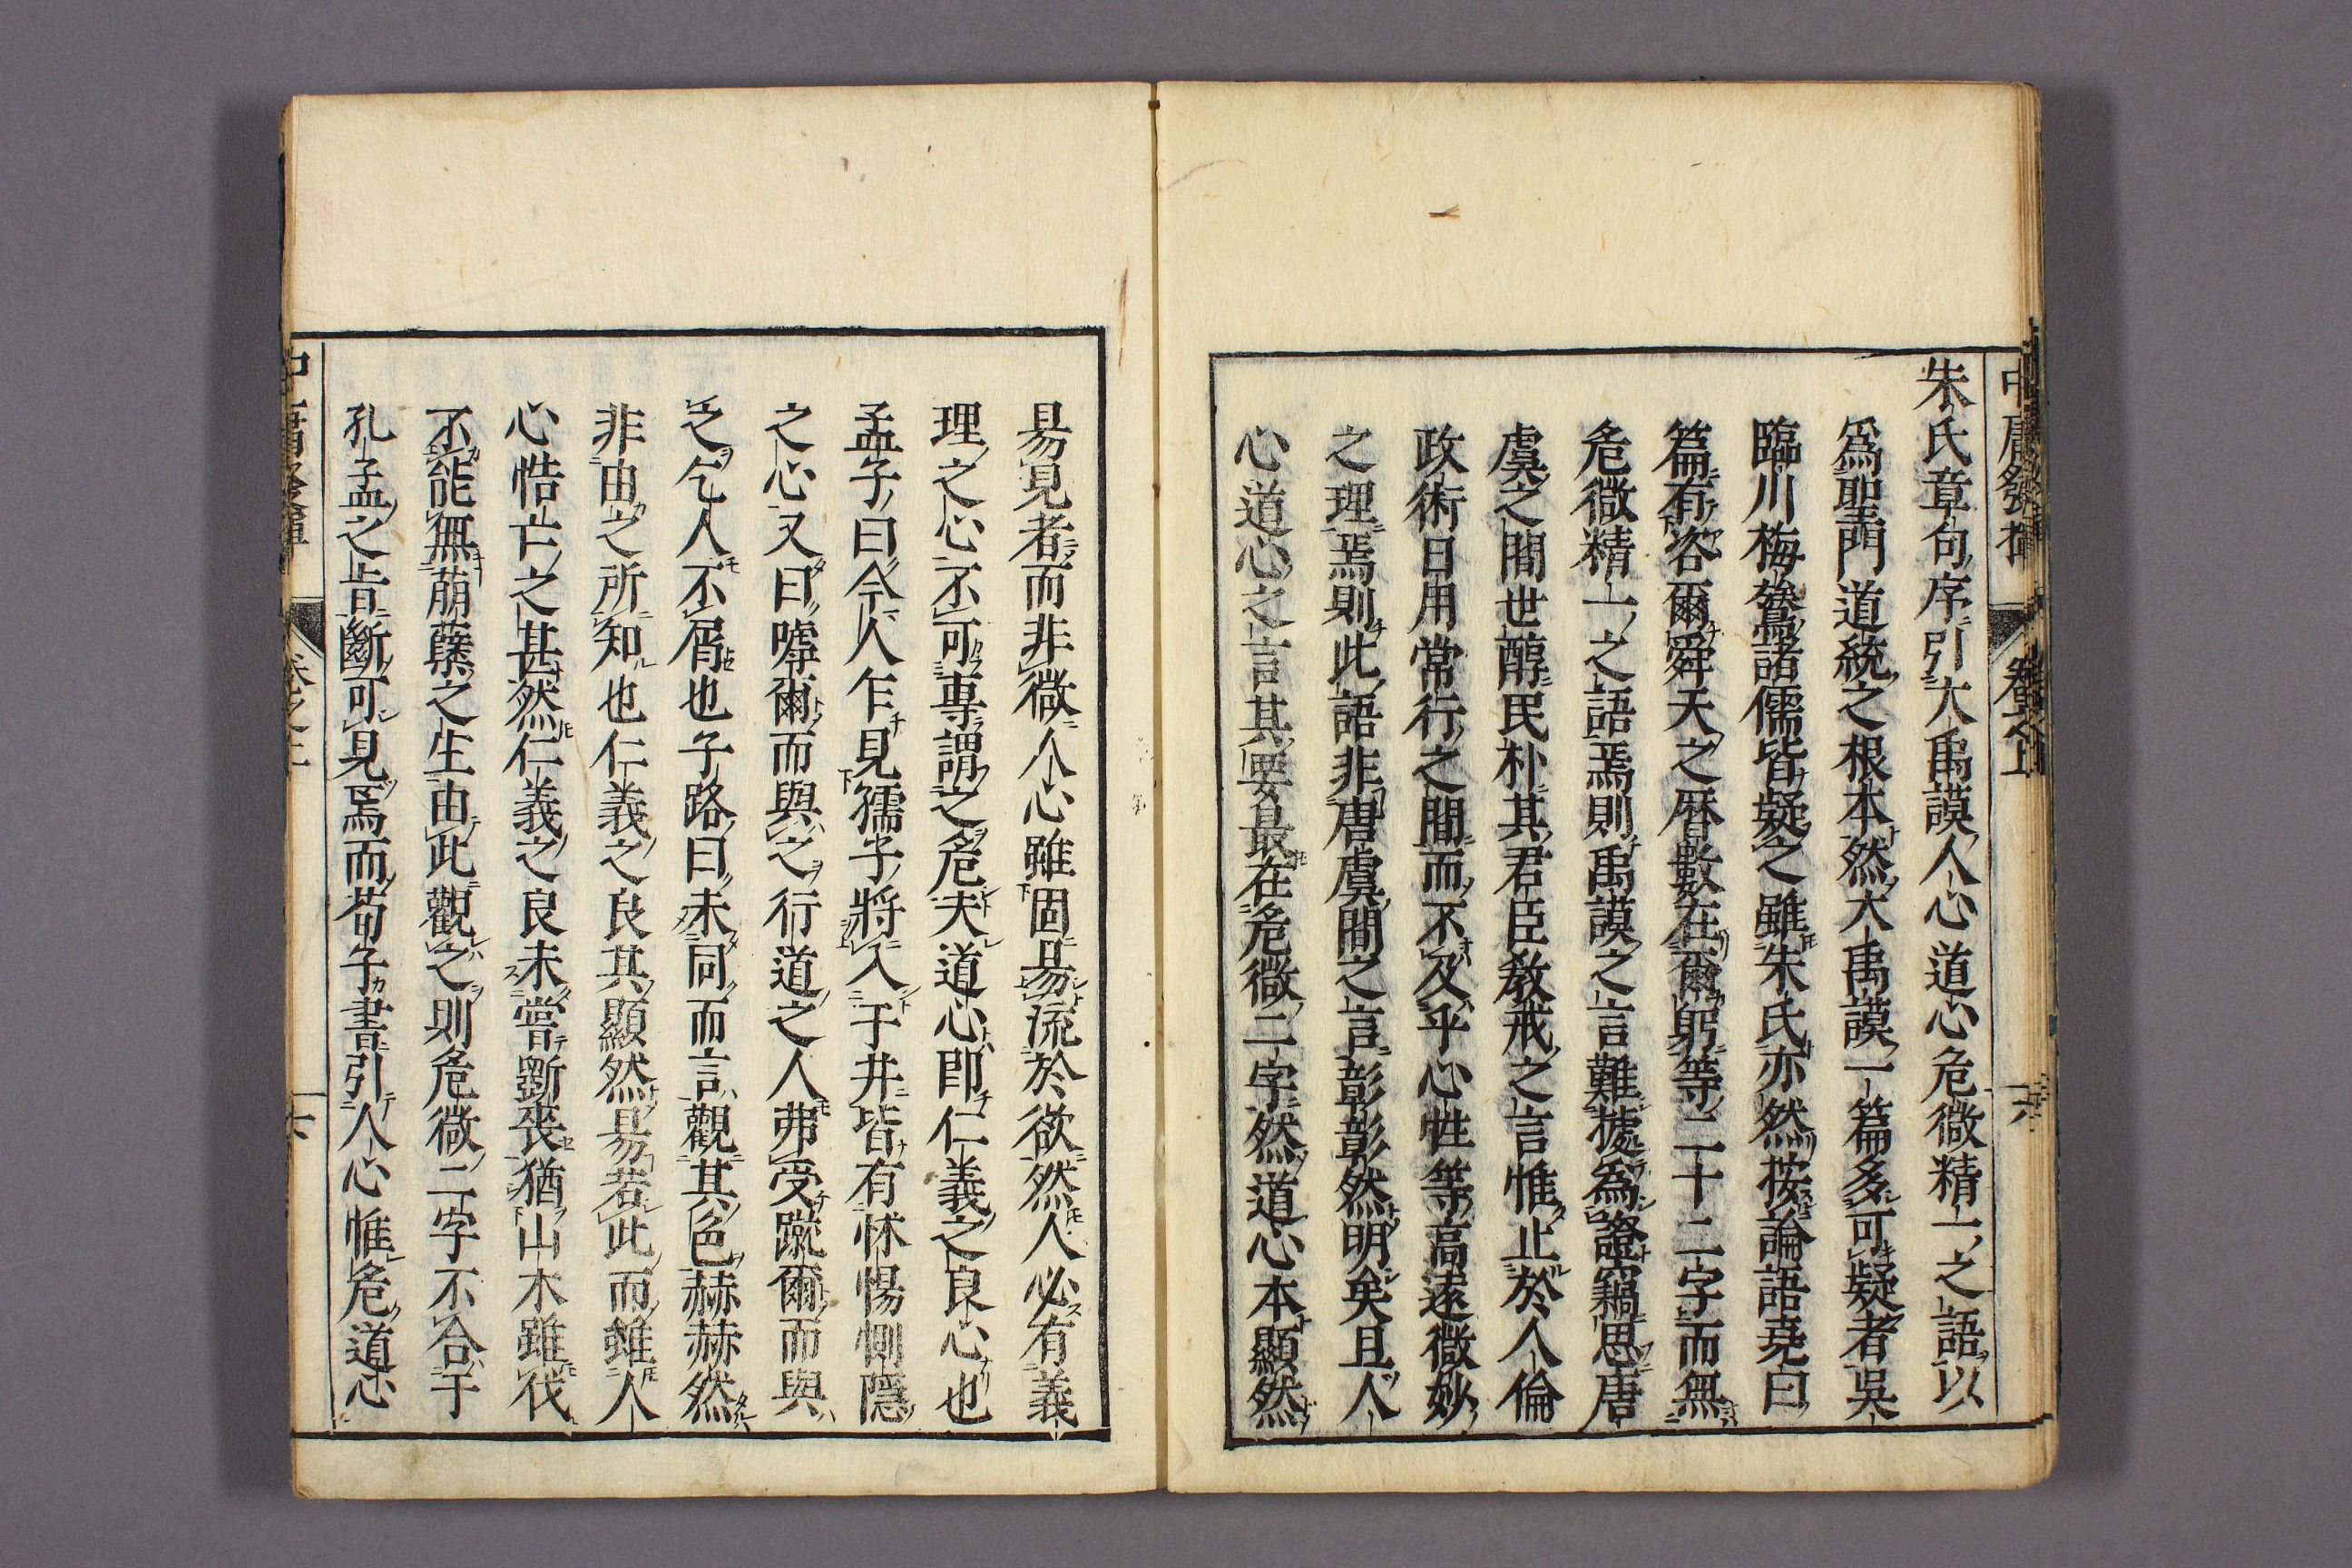 朱氏章句序引大禹謨人心道心危微精一之語以
爲聖門道統之根本然大禹謨一篇多可疑者吳
臨川梅鷟諸儒皆疑之雖朱氏亦然按論語堯曰
篇有咨爾舜天之曆數在爾躬等二十二字而無
危微精一之語焉則禹謨之言難據爲證竊思唐
虞之間世醇民朴其君臣教戒之言惟止於人倫
政術日用常行之間而不及乎心性等高遠微妙
之理焉則此語非唐虞間之言彰彰然明矣且人
心道心之言其要最在危微二字然道心本顯然
易見者而非微人心雖固易流於欲然人必有義
理之心不可專謂之危夫道心即仁義之良心也
孟子曰今人乍見孺子將入于井皆有怵惕惻隱
之心又曰嘑爾而與之行道之人弗受蹴爾而與
之乞人不屑也子路曰未同而言觀其色赧赧然
非由之所知也仁義之良其顯然易若此而雖人
心牿亡之甚然仁義之良未嘗斲喪猶山木雖伐
不能無萠蘖之生由此觀之則危微二字不合于
孔孟之旨斷可見焉而荀子書引人心惟危道心
中庸發揮
六